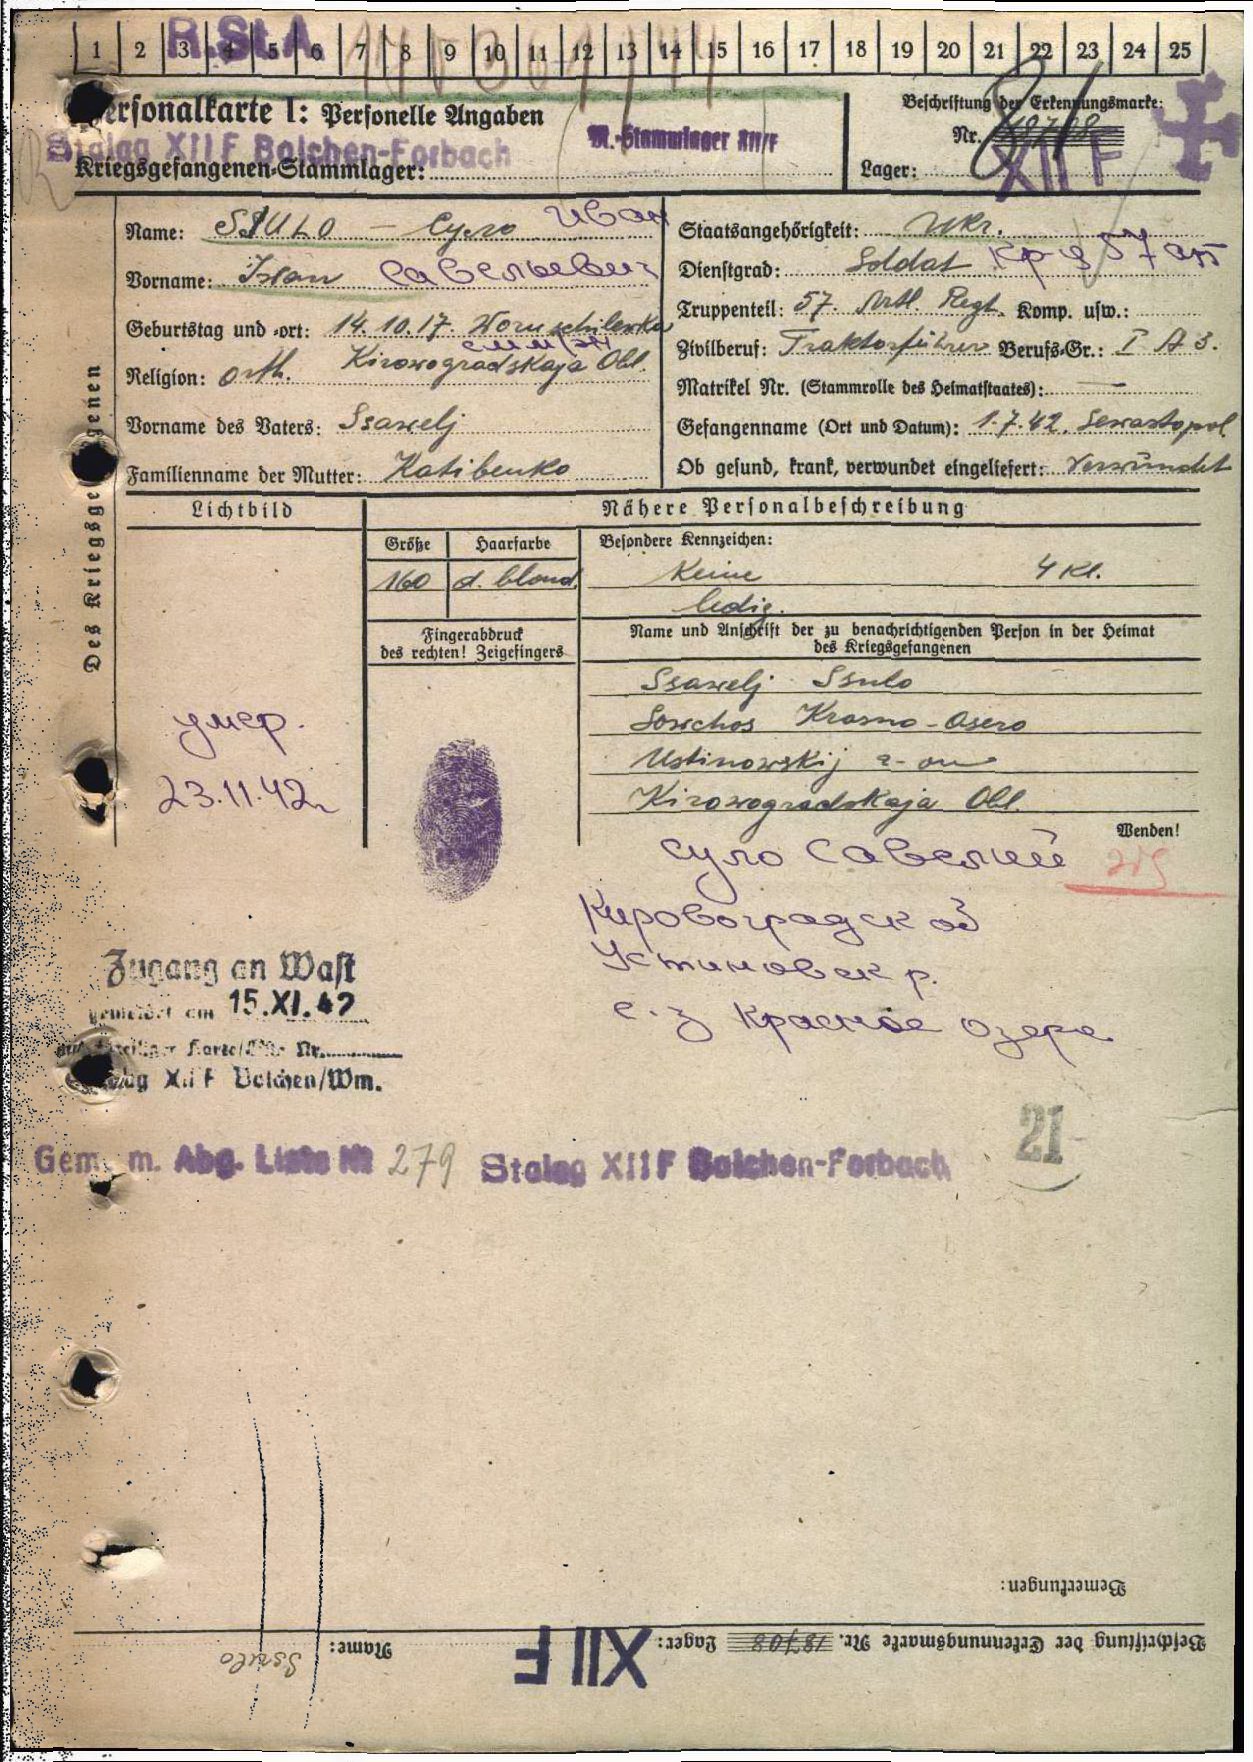 1 2 3 4 5 6 7 8 9 10 11 12 13 14 15 16 17 18 19 20 21 22 23 24 25
R.St.A.
Personalkarte I: Personelle Angaben
Beschriftung der Erkennungsmarke:
Stalag XII F Bolchen-Forbach
M.-Stammlager XII F
Nr. 18708
Kriegsgefangenen-Stammlager:
Lager: XII F
Des Kriegsgefangenen
Name: SSULO – Суло Иван
Vorname: Iwan Савельевич
Geburtstag und -ort: 14.10.17. Woruschilowka
Religion: orth. Kirowogradskaja Obl.
Vorname des Vaters: Ssawelj
Familienname der Mutter: Katibenko
Staatsangehörigkeit: Ukr.
Dienstgrad: Soldat кр-ц 57 ап
Truppenteil: 57. Artl. Regt. Komp. usw.:
Zivilberuf: Traktorführer Berufs-Gr.: I A 3.
Matrikel Nr. (Stammrolle des Heimatstaates): —
Gefangenname (Ort und Datum): 1.7.42. Sewastopol
Ob gesund, krank, verwundet eingeliefert: Verwundet
Lichtbild
Nähere Personalbeschreibung
Größe Haarfarbe Besondere Kennzeichen:
160 d. blond. Keine 4 Kl.
ledig.
Fingerabdruck
des rechten! Zeigefingers
Name und Anschrift der zu benachrichtigenden Person in der Heimat
des Kriegsgefangenen
Ssawelj Ssulo
Sowchos Krasno-Osero
Ustinowskij r-on
Kirowogradskaja Obl.
умер.
23.11.42г
Wenden!
Суло Савелий
Кировоградской
Устиновск р.
с.з Красное Озеро
Zugang an Wast
gemeldet am 15.XI.42
Stalag XII F Bolchen/Wm.
21
Gem. m. Abg. Liste Nr 279 Stalag XII F Bolchen-Forbach
Bemerkungen:
Beschriftung der Erkennungsmarke Nr. 18708 Lager: XII F Name: Ssulo